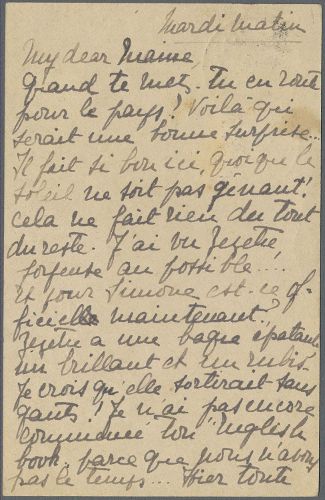 Mardi matin
My dear Maime,
Quand te mets-tu en route
pour le pays? Voilà qui
serait une bonne surprise...
Il fait si bon ici, quoique le
soleil ne soit pas gênant!
cela ne fait rien du tout
du reste. J'ai vu
joyeuse au possible....
et pour Simone est-ce of-
ficielle maintenant?
a une bague épatante
un brillant et un rubis.
Je crois qu'elle sortirait sans
gants! Je n'ai pas encore
commencé ton English
book, parce que nous n'avons
pas le temps... Hier toute